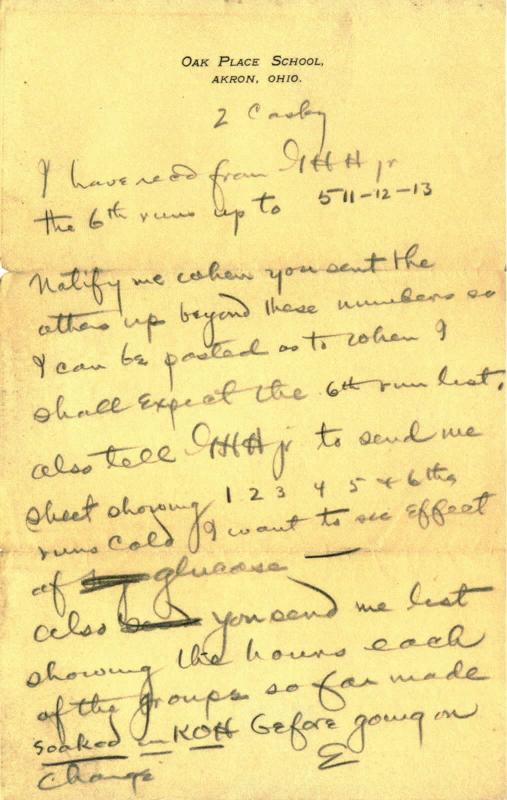 OAK PLACE SCHOOL,
AKRON, OHIO.
I have read from HH jr
the 6th runs up to 511-12-13
Notify me when you sent the
others up beyond these numbers so
I can be posted as to when I
shall Expect the 6th run list.
also tell HH jr to send me
sheet showing 1 2 3 4 5 & 6 ths
runs cold I want to see Effect
of glucose
also you send me list
showing the hours each
of the groups so far made
soaked in KOH before going on
Change E